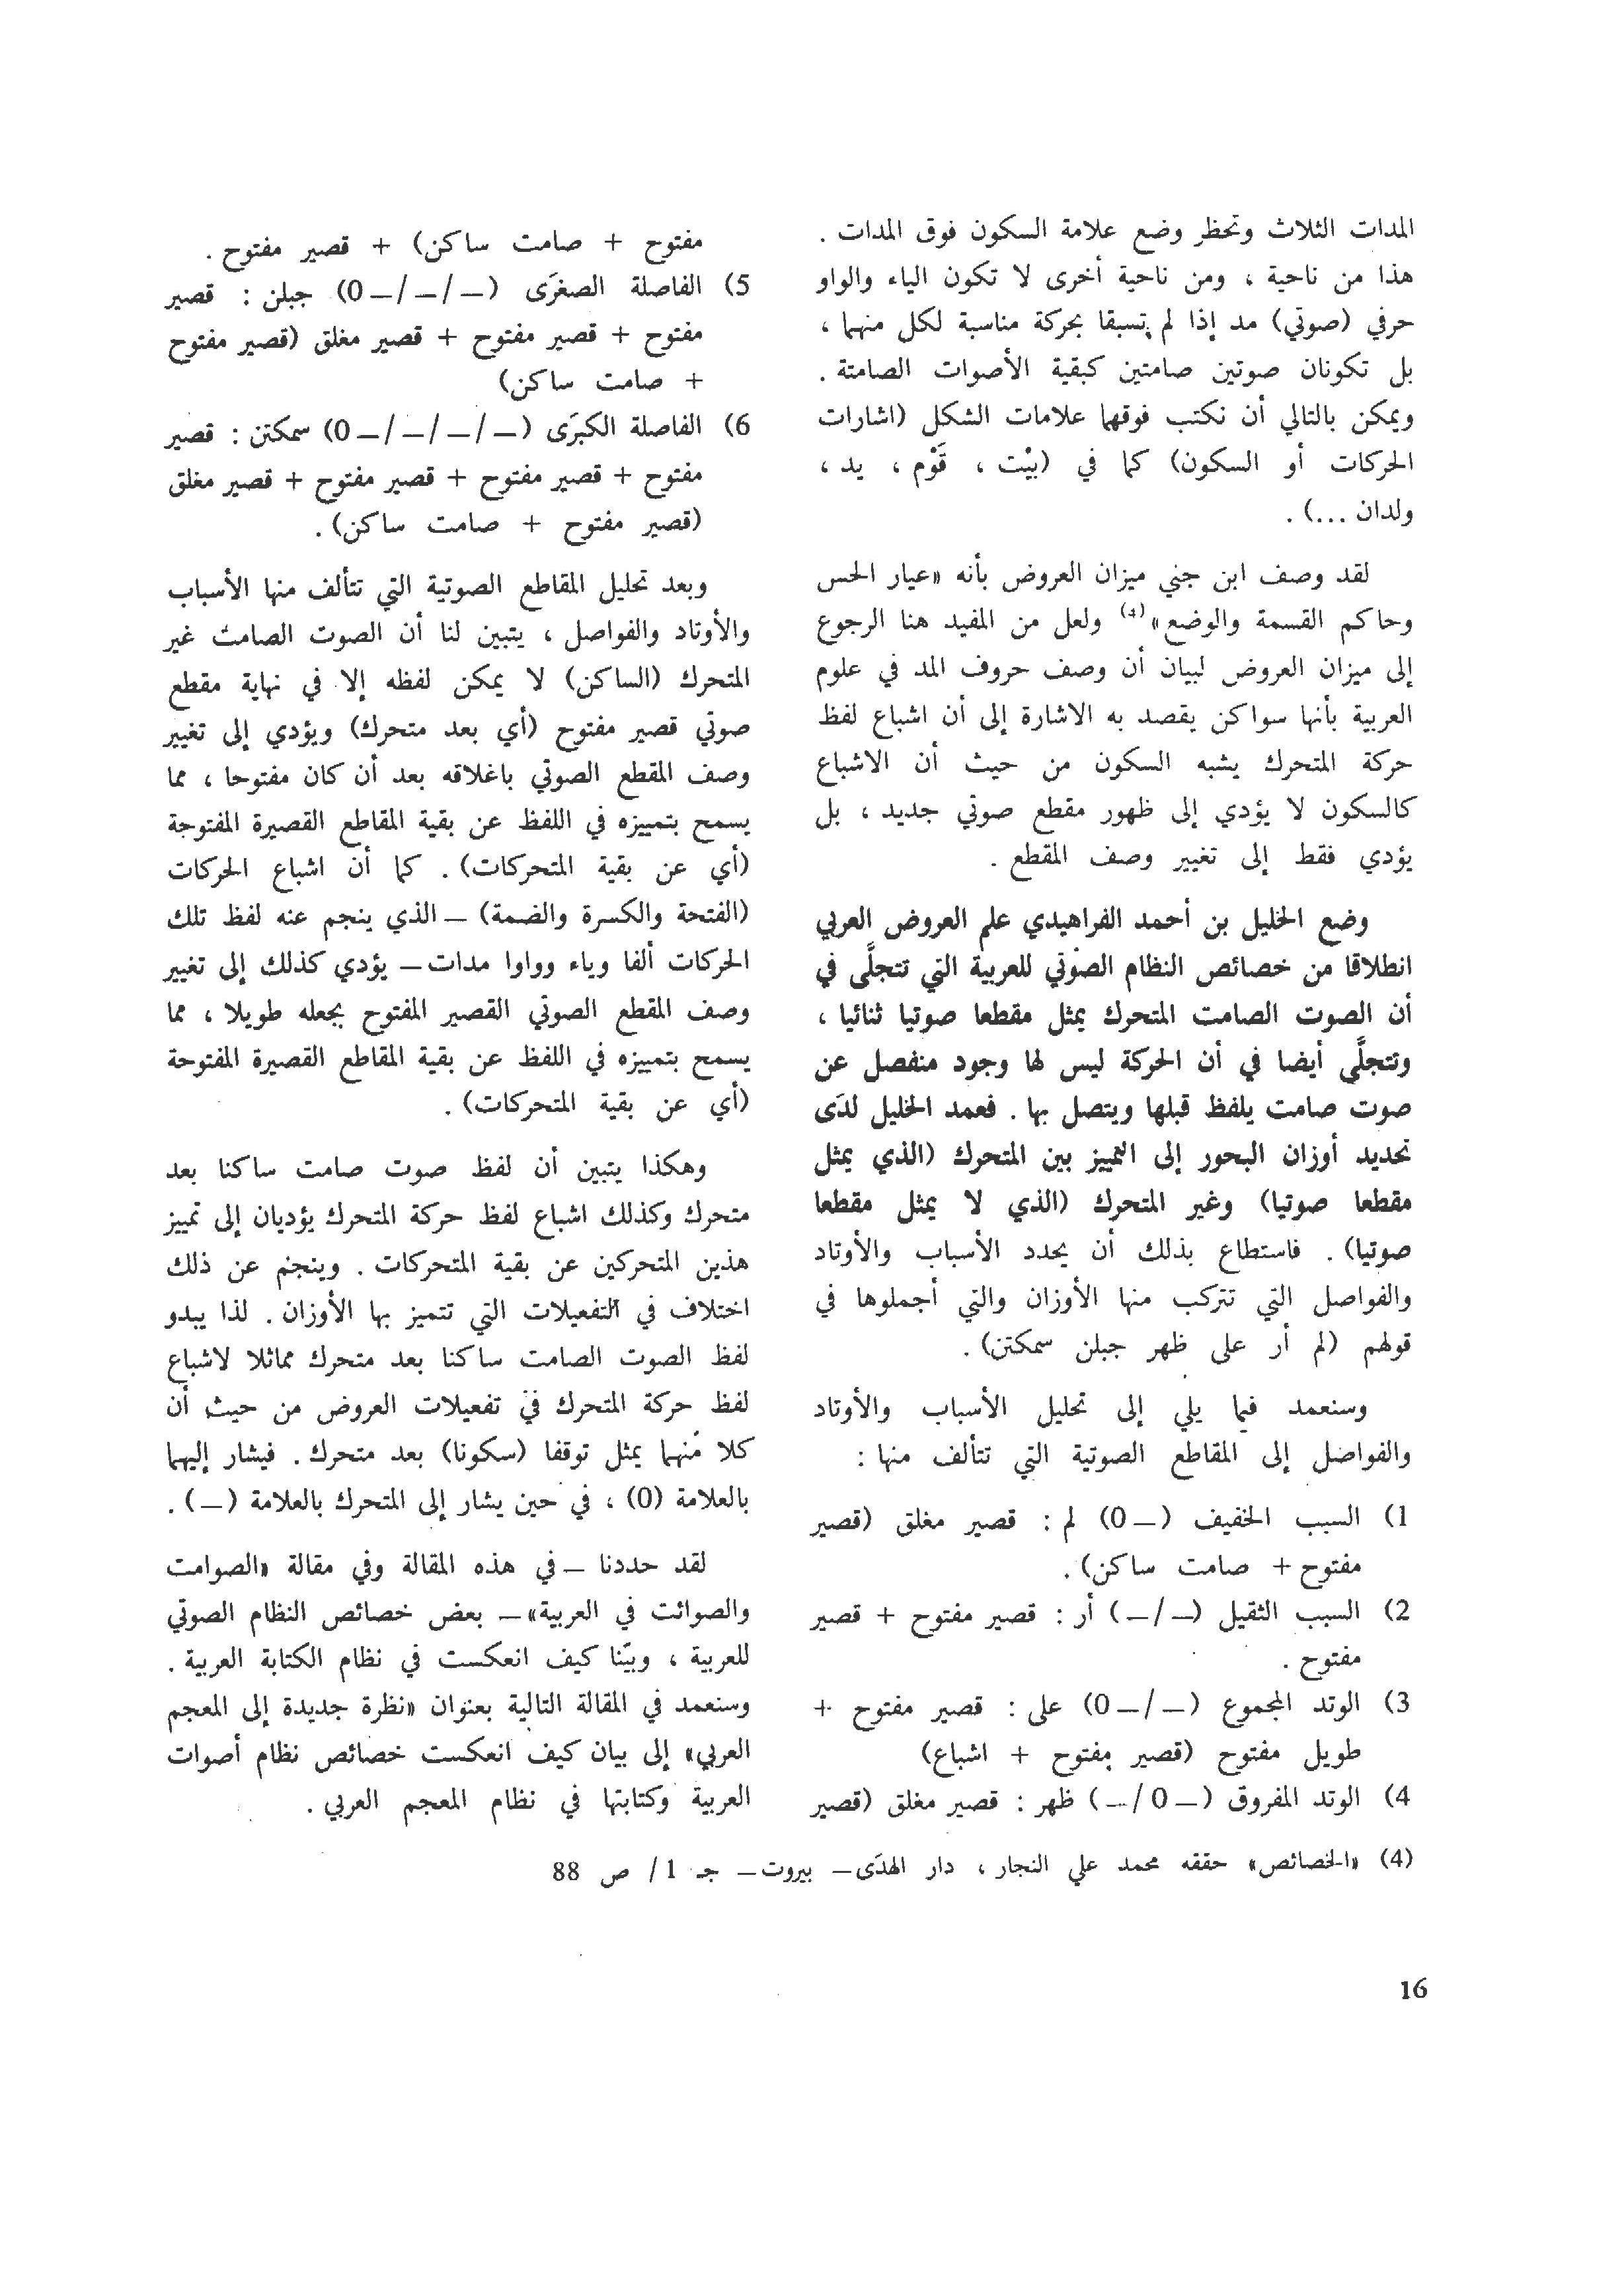 المدات الثلاث وتحظر وضع علامة السكون فوق المدات .
هذا من ناحية ، ومن ناحية أخرى لا تكون الياء والواو
حرفي (صوتي) مد إذا لم تسبقا بحركة مناسبة لكل منهما ،
بل تكونان صوتين صامتين كبقية الأصوات الصامتة .
ويمكن بالتالي أن نكتب فوقهما علامات الشكل (اشارات
الحركات أو السكون) كما في (بيْت ، قَوْم ، يد ،
ولدان ...) .
لقد وصف ابن جني ميزان العروض بأنه «عيار الحس
وحاكم القسمة والوضع» (4) ولعل من المفيد هنا الرجوع
إلى ميزان العروض لبيان أن وصف حروف المد في علوم
العربية بأنها سواكن يقصد به الاشارة إلى أن اشباع لفظ
حركة المتحرك يشبه السكون من حيث أن الاشباع
كالسكون لا يؤدي إلى ظهور مقطع صوتي جديد ، بل
يؤدي فقط إلى تغيير وصف المقطع .
وضع الخليل بن أحمد الفراهيدي علم العروض العربي
انطلاقا من خصائص النظام الصوْتي للعربية التي تتجلَّى في
أن الصوت الصامت المتحرك يمثل مقطعا صوتيا ثنائيا ،
وتتجلَّى أيضا في أن الحركة ليس لها وجود منفصل عن
صوت صامت يلفظ قبلها ويتصل بها . فعمد الخليل لدَى
تحديد أوزان البحور إلى التمييز بين المتحرك (الذي يمثل
مقطعا صوتيا) وغير المتحرك (الذي لا يمثل مقطعا
صوتيا) . فاستطاع بذلك أن يحدد الأسباب والأوتاد
والفواصل التي تتركب منها الأوزان والتي أجملوها في
قولهم (لم أر على ظهر جبلن سمكتن) .
وسنعمد فيما يلي إلى تحليل الأسباب والأوتاد
والفواصل إلى المقاطع الصوتية التي تتألف منها :
1) السبب الخفيف (— 0) لم : قصير مغلق (قصير
مفتوح + صامت ساكن) .
2) السبب الثقيل (—/—) أر : قصير مفتوح + قصير
مفتوح .
3) الوتد المجموع (—/— 0) على : قصير مفتوح +
طويل مفتوح (قصير مفتوح + اشباع)
4) الوتد المفروق (— 0/—) ظهر : قصير مغلق (قصير
مفتوح + صامت ساكن) + قصير مفتوح .
5) الفاصلة الصغرَى (—/—/— 0) جبلن : قصير
مفتوح + قصير مفتوح + قصير مغلق (قصير مفتوح
+ صامت ساكن)
6) الفاصلة الكبرَى (—/—/—/— 0) سمكتن : قصير
مفتوح + قصير مفتوح + قصير مفتوح + قصير مغلق
(قصير مفتوح + صامت ساكن) .
وبعد تحليل المقاطع الصوتية التي تتألف منها الأسباب
والأوتاد والفواصل ، يتبين لنا أن الصوت الصامت غير
المتحرك (الساكن) لا يمكن لفظه إلا في نهاية مقطع
صوتي قصير مفتوح (أي بعد متحرك) ويؤدي إلى تغيير
وصف المقطع الصوتي باغلاقه بعد أن كان مفتوحا ، مما
يسمح بتمييزه في اللفظ عن بقية المقاطع القصيرة المفتوحة
(أي عن بقية المتحركات) . كما أن اشباع الحركات
(الفتحة والكسرة والضمة) — الذي ينجم عنه لفظ تلك
الحركات ألفا وياء وواوا مدات — يؤدي كذلك إلى تغيير
وصف المقطع الصوتي القصير المفتوح بجعله طويلا ، مما
يسمح بتمييزه في اللفظ عن بقية المقاطع القصيرة المفتوحة
(أي عن بقية المتحركات) .
وهكذا يتبين أن لفظ صوت صامت ساكنا بعد
متحرك وكذلك اشباع لفظ حركة المتحرك يؤديان إلى تمييز
هذين المتحركين عن بقية المتحركات . وينجم عن ذلك
اختلاف في التفعيلات التي تتميز بها الأوزان . لذا يبدو
لفظ الصوت الصامت ساكنا بعد متحرك مماثلا لاشباع
لفظ حركة المتحرك في تفعيلات العروض من حيث أن
كلا منهما يمثل توقفا (سكونا) بعد متحرك . فيشار إليهما
بالعلامة (0) ، في حين يشار إلى المتحرك بالعلامة (—) .
لقد حددنا — في هذه المقالة وفي مقالة «الصوامت
والصوائت في العربية» — بعض خصائص النظام الصوتي
للعربية ، وبيّنا كيف انعكست في نظام الكتابة العربية .
وسنعمد في المقالة التالية بعنوان «نظرة جديدة إلى المعجم
العربي» إلى بيان كيف انعكست خصائص نظام أصوات
العربية وكتابتها في نظام المعجم العربي .
(4) «الخصائص» حققه محمد علي النجار ، دار الهدَى — بيروت — جـ 1/ ص 88
16